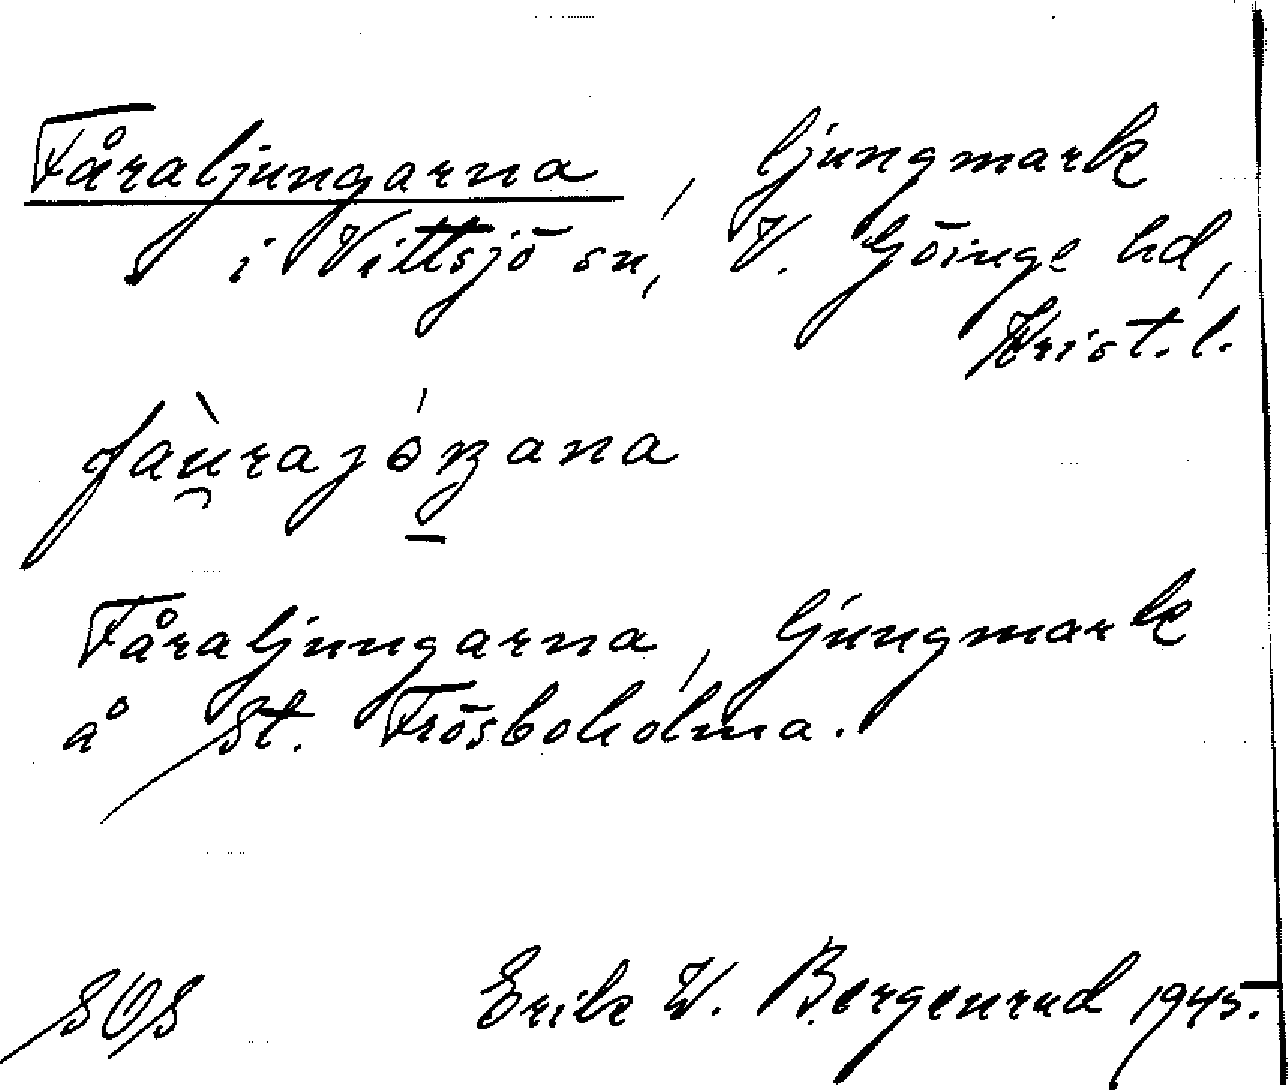 Fåraljungarna, ljungmark
i Vittsjö sn, V. Göinge hd,
Krist. l.
fau̯rajoŋana
Fåraljungarna, ljungmark
å St. Frösboholma.
SOS Erik W. Bergenrud 1945.